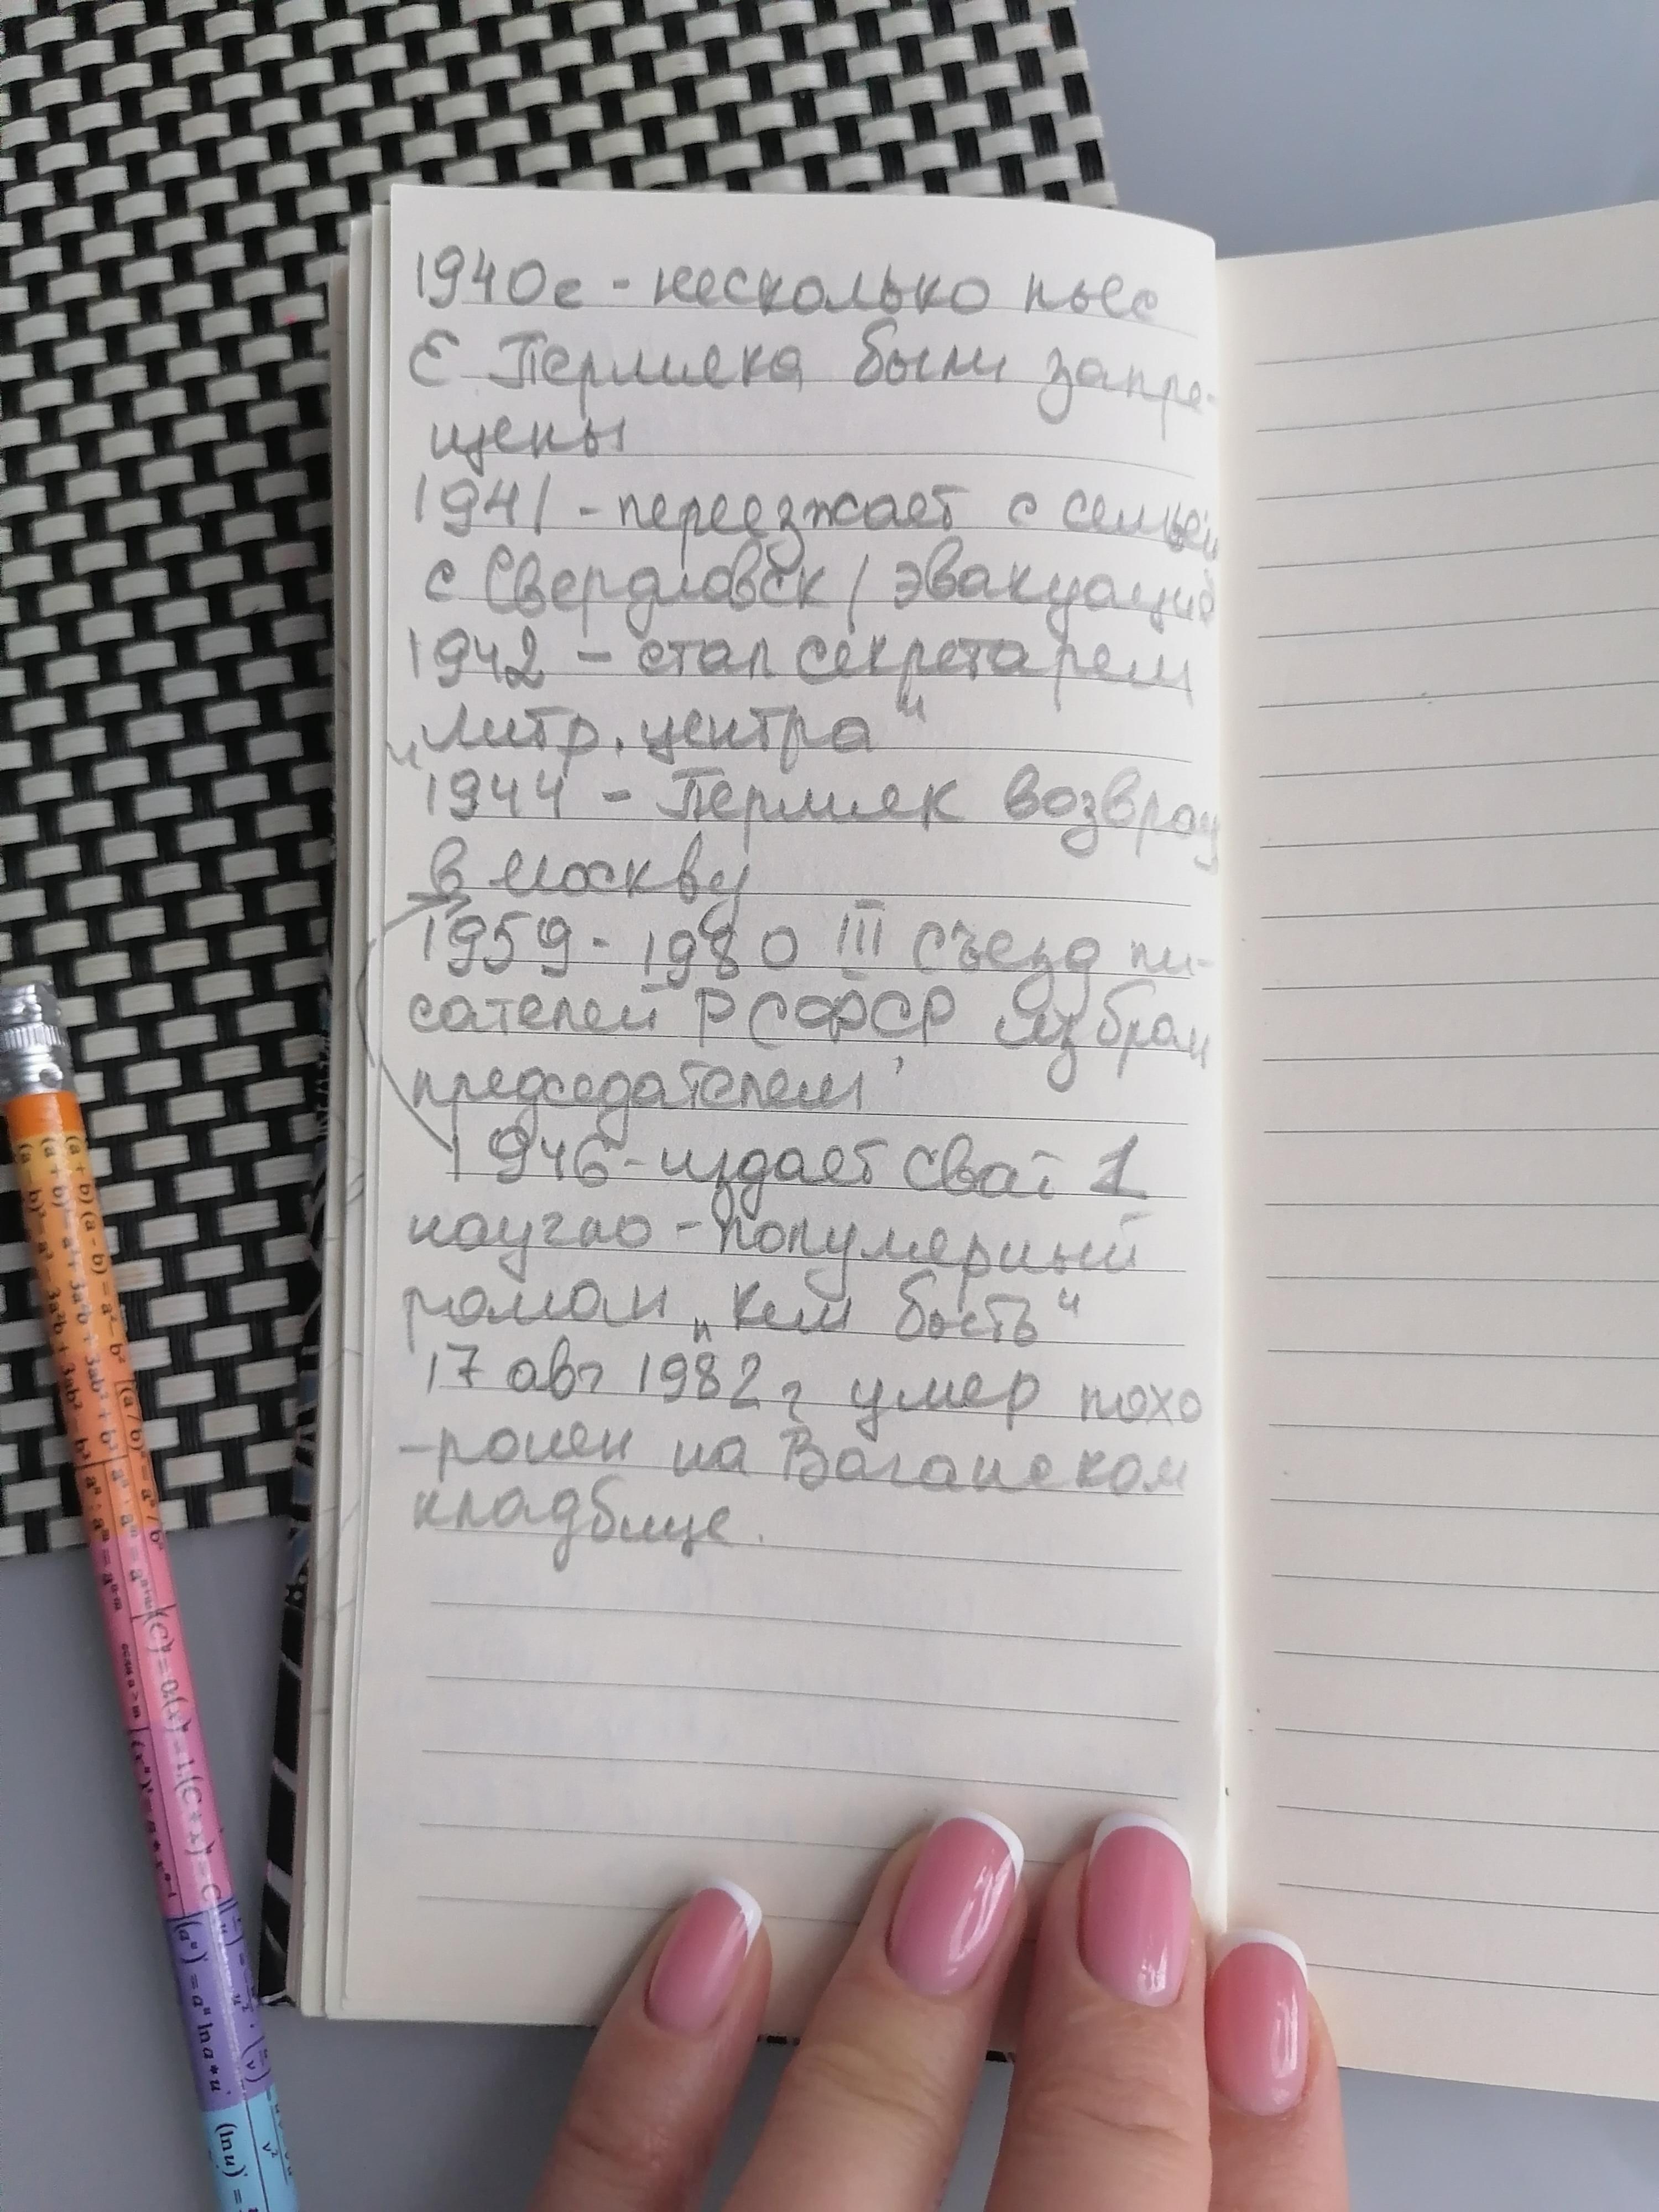 1940е - несколько пьес
Е Пермяка были запре-
щены
1941 - переезжает с семьей
с Свердловск / эвакуация
1942 - стал секретарем
"литр. центра"
1944 - Пермяк возвращ
в Москву
1959 - 1980 III съезд пи-
сателей РСФСР избран
председателем
1946 - издает свай 1
научно - популярный
роман "Кем быть"
17 авг 1982 г умер похо
-ронен на Ваганском
кладбище.
(a + b)(a - b) = a² - b²